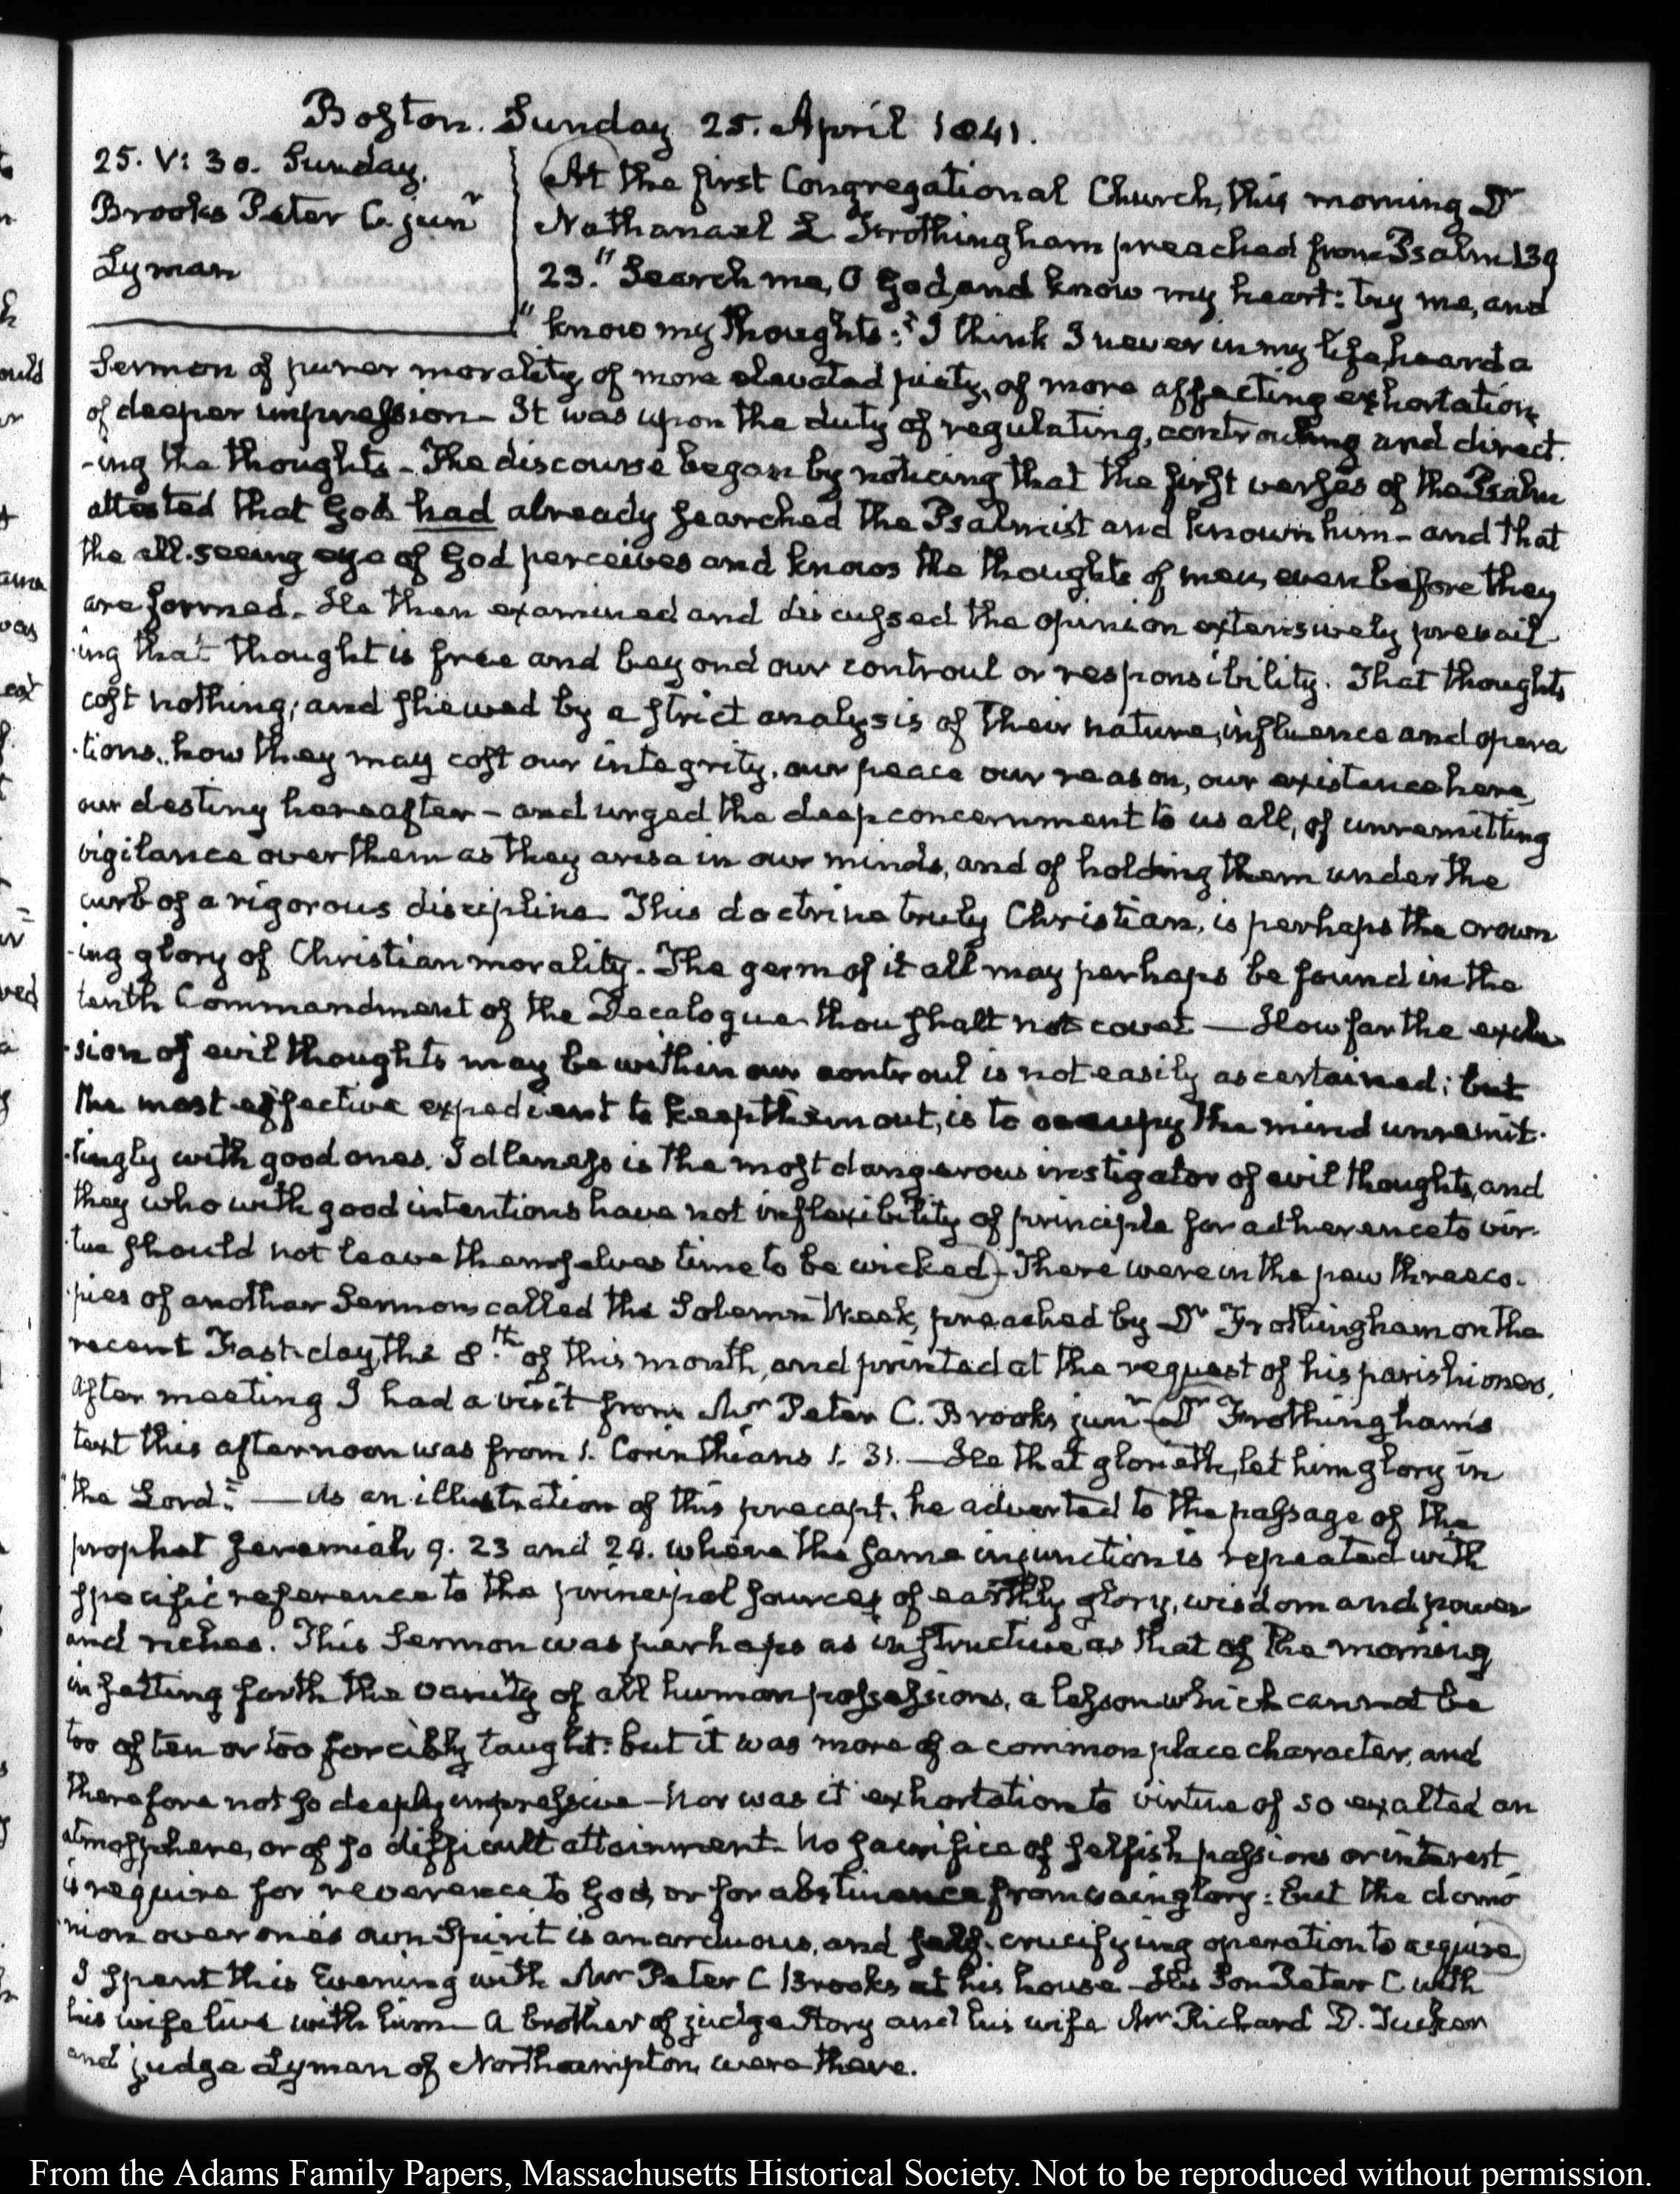 Boston. Sunday 25. April 1841.
25. V: 30. Sunday.
Brooks Peter C. junr
Lyman
At the first Congregational Church, this morning Dr
Nathanael L Frothingham preached from Psalm 139
23. "Search me, O God, and know my heart: try me, and
"know my thoughts:" I think I never in my life, heard a
Sermon of purer morality, of more elevated piety, of more affecting exhortation,
of deeper impression— It was upon the duty of regulating, controuling and direct-
-ing the thoughts— The discourse began by noticing that the first verses of the Psalm
attested that God had already searched the Psalmist and known him— and that
the all-seeing eye of God perceives and knows the thoughts of men, even before they
are formed. He then examined and discussed the opinion extensively prevail-
-ing that thought is free and beyond our controul or responsibility. That thoughts
cost nothing; and shewed by a strict analysis of their nature, influence and opera
-tions, how they may cost our integrity, our peace our reason, our existence here,
our destiny hereafter— and urged the deep concernment to us all, of unremitting
vigilance over them as they arise in our minds, and of holding them under the
curb of a rigorous discipline. This doctrine truly Christian, is perhaps the crown
-ing glory of Christian morality. The germ of it all may perhaps be found in the
tenth Commandment of the Decalogue thou shalt not covet — How far the exclu
-sion of evil thoughts may be within our controul is not easily ascertained; but
the most effective expedient to keep them out, is to occupy the mind unremit-
-tingly with good ones. Idleness is the most dangerous instigator of evil thoughts, and
they who with good intentions have not inflexibility of principle for adherence to vir-
-tue should not leave themselves time to be wicked)— There were in the pew three co-
-pies of another Sermon called the Solemn Week, preached by Dr Frothingham on the
recent Fast-day, the 8.th of this month, and printed at the request of his parishioners.
After meeting I had a visit from Mr Peter C. Brooks junr (Dr Frothingham's
text this afternoon was from 1. Corinthians 1. 31. — He that glorieth, let him glory in
"the Lord." — As an illustration of this precept, he adverted to the passage of the
prophet Jeremiah 9. 23 and 24. where the same injunction is repeated with
specific reference to the principal sources of earthly glory, wisdom and power
and riches. This Sermon was perhaps as instructive as that of the morning
in setting forth the vanity of all human possessions, a lesson which cannot be
too often or too forcibly taught: but it was more of a common place character, and
therefore not so deeply impressive— Nor was it exhortation to virtue of so exalted an
atmosphere, or of so difficult attainment. No sacrifice of selfish passions or interest
is require for reverence to God, or for abstinence from vainglory: But the domi
-nion over one's own Spirit is an arduous, and self-crucifying operation to acquire)
I spent this Evening with Mr Peter C Brooks at his house— His Son Peter C with
his wife live with him— A brother of judge Story and his wife Mr Richard D. Tucker
and judge Lyman of Northampton, were there.
From the Adams Family Papers, Massachusetts Historical Society. Not to be reproduced without permission.